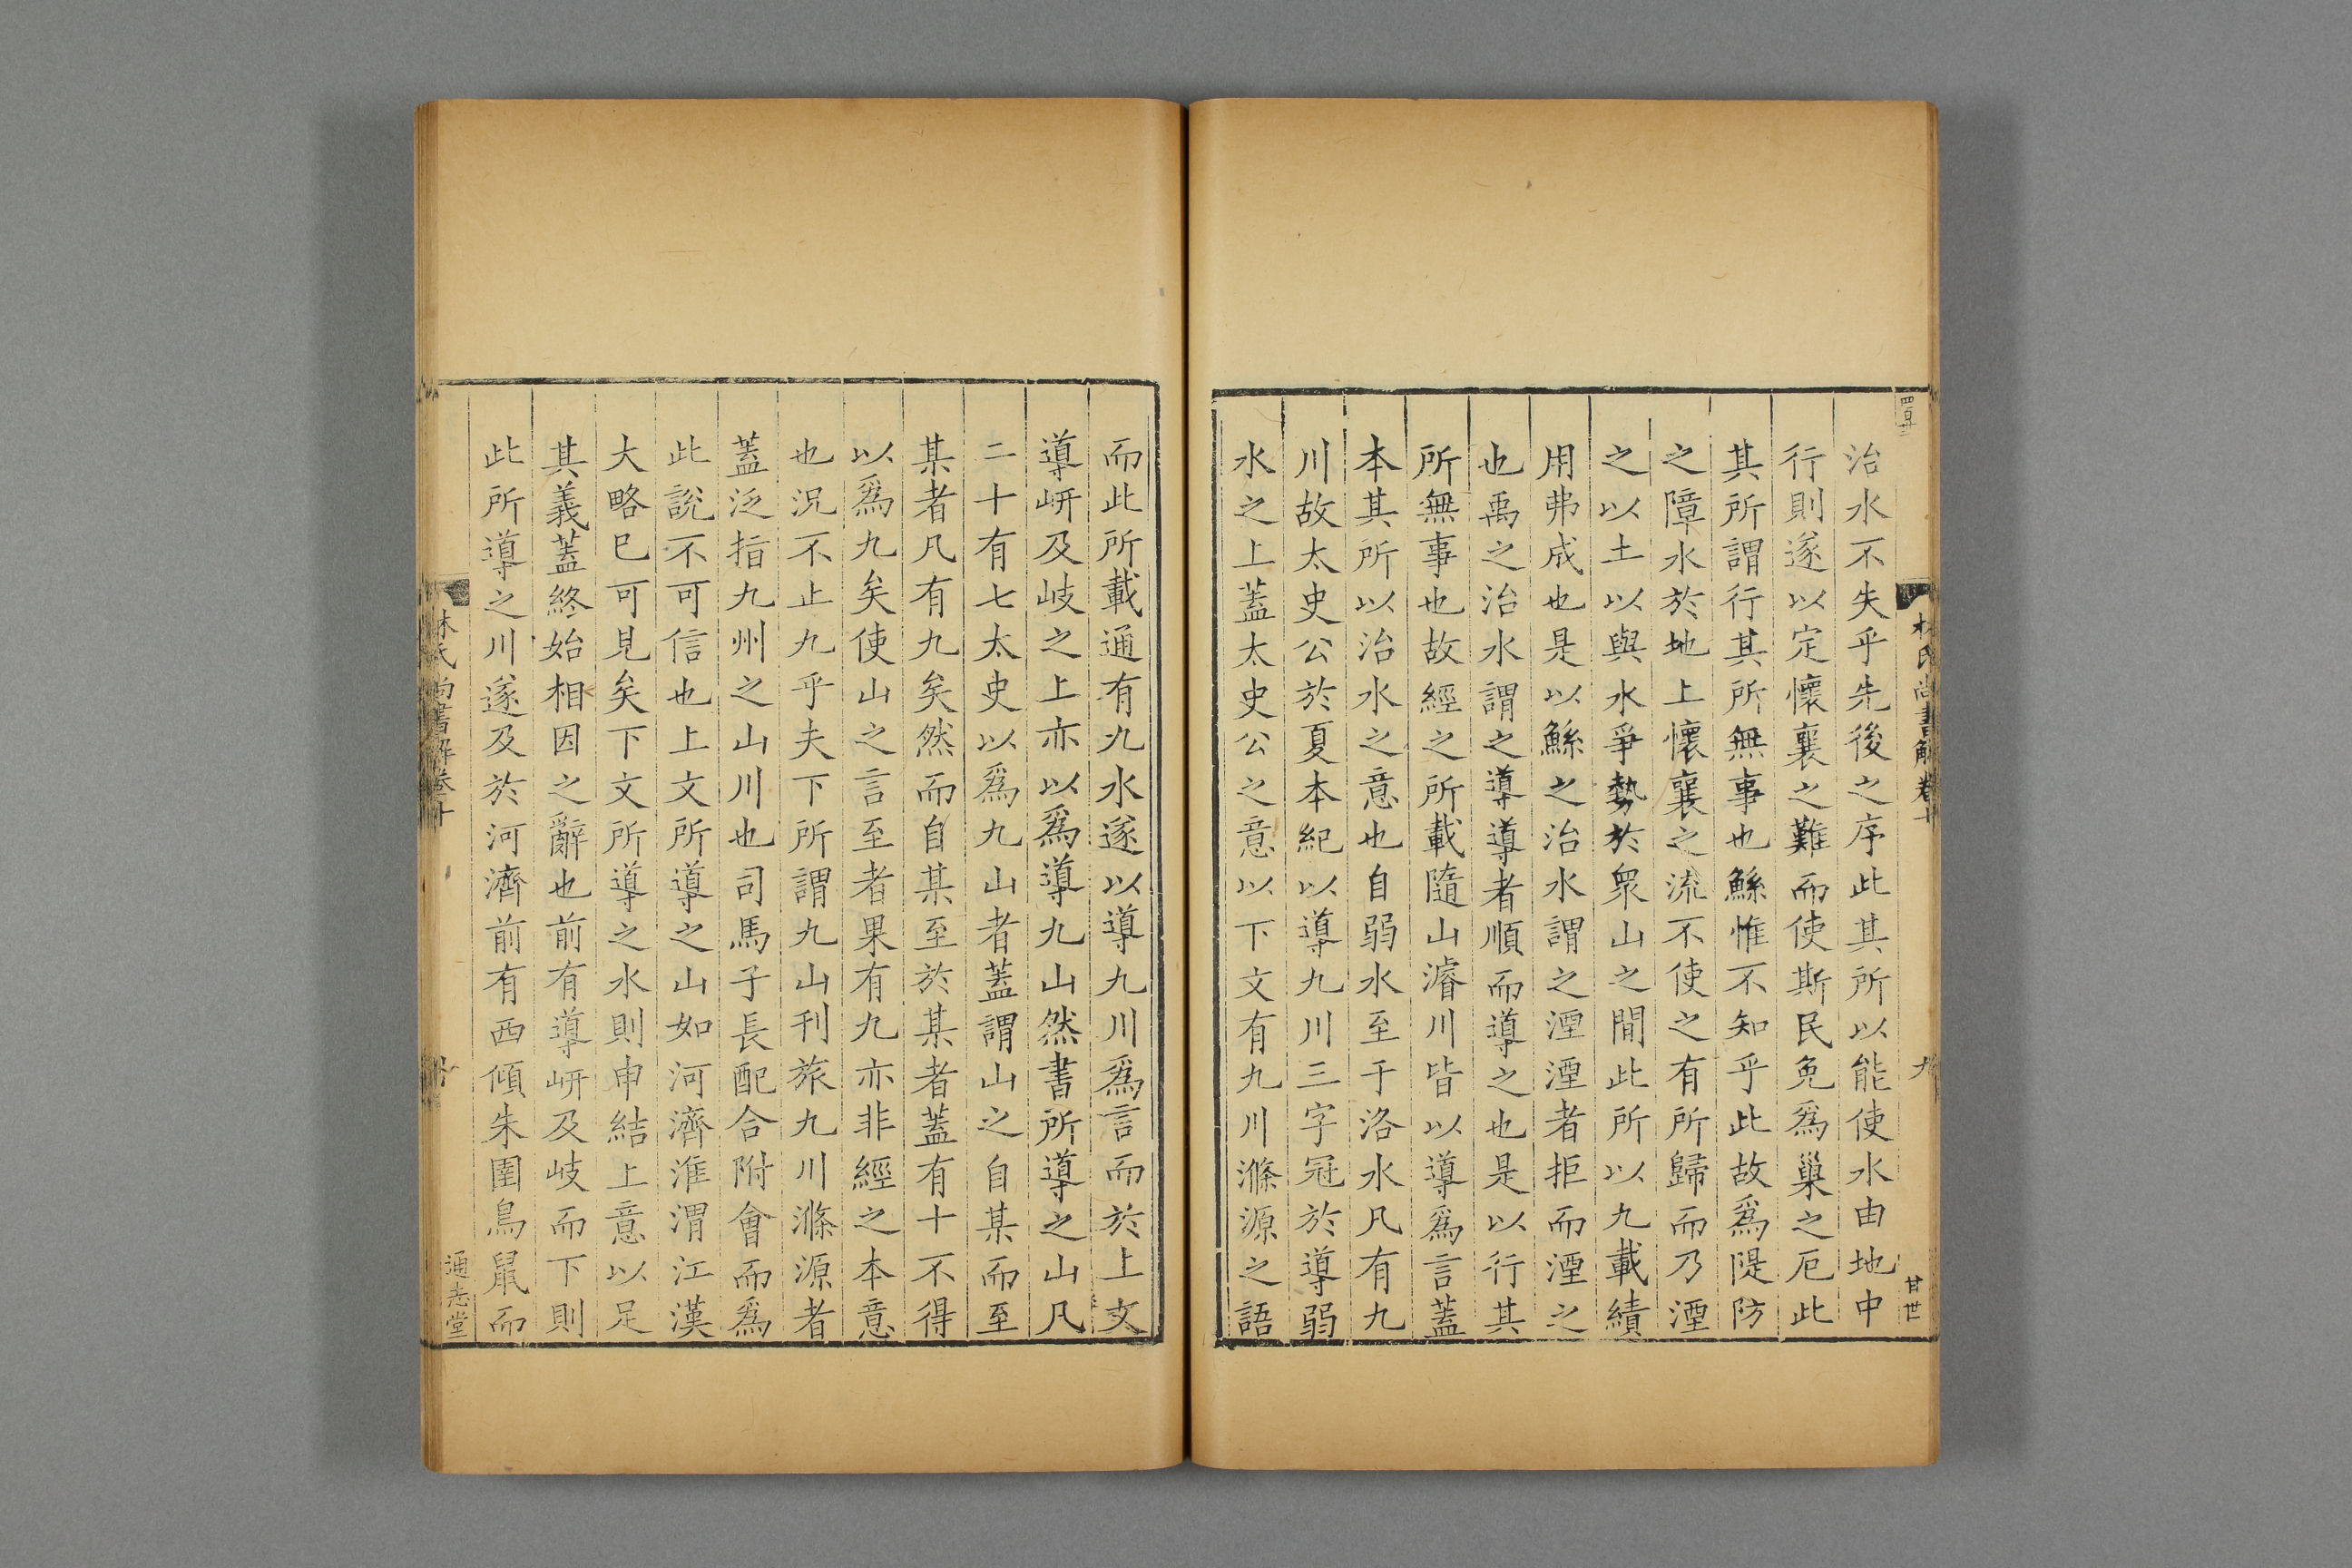 治水不失乎先後之序此其所以能使水由地中
行則遂以定懷襄之難而使斯民免爲巢之厄此
其所謂行其所無事也鯀惟不知乎此故爲隄防
之障水於地上懷襄之流不使之有所歸而乃湮
之以土以與水爭勢於衆山之間此所以九載績
用弗成也是以鯀之治水謂之湮湮者拒而湮之
也禹之治水謂之導導者順而導之也是以行其
所無事也故經之所載隨山濬川皆以導爲言蓋
本其所以治水之意也自弱水至于洛水凡有九
川故太史公於夏本紀以導九川三字冠於導弱
水之上蓋太史公之意以下文有九川滌源之語
林氏尚書解卷十
九
甘世
而此所載通有九水遂以導九川爲言而於上文
導岍及岐之上亦以爲導九山然書所導之山凡
二十有七太史以爲九山者蓋謂山之自某而至
某者凡有九矣然而自某至於某者蓋有十不得
以爲九矣使山之言至者果有九亦非經之本意
也況不止九乎夫下所謂九山刊旅九川滌源者
蓋泛指九州之山川也司馬子長配合附會而爲
此說不可信也上文所導之山如河濟淮渭江漢
大略已可見矣下文所導之水則申結上意以足
其義蓋終始相因之辭也前有導岍及岐而下則
此所導之川遂及於河濟前有西傾朱圉鳥鼠而
林氏尚書解卷十
通志堂